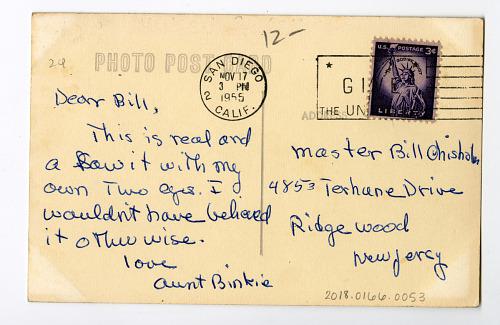 24
12-
PHOTO POST CARD
SAN DIEGO
NOV 17
3 PM
1955
2 CALIF.
U.S. POSTAGE 3¢
LIBERTY
GI
THE UN
Dear Bill,
This is real and
a Saw it with my
own Two eyes. I
wouldn't have believed
it otherwise.
love
Aunt Binkie
Master Bill Chisholm
4853 Terhane Drive
Ridgewood
New Jersy
2018.0166.0053